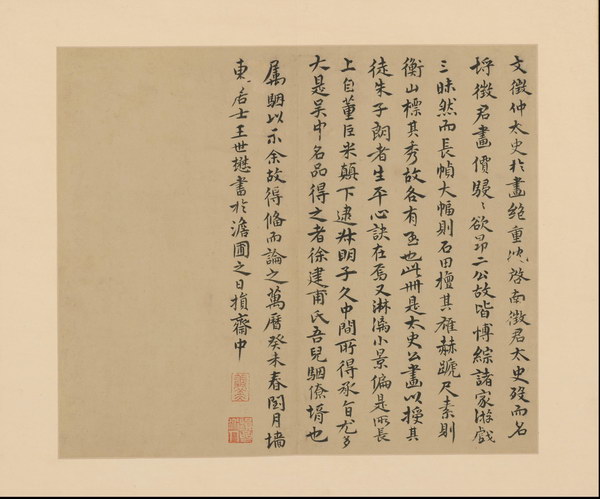 文徵仲太史於畫絕重沈啓南徵君太史歿而名
埒徵君畫價駸〻欲昂二公故皆博綜諸家游戲
三昧然而長幀大幅則石田擅其雄赫蹏尺素則
衡山標其秀故各有至也此冊是太史公畫以授其
徒朱子朗者生平心訣在焉又淋漓小景偏是所長
上自董巨米顛下逮叔明子久中間所得承旨尤多
大是吳中名品得之者徐建甫氏吾兒駰僚壻也
屬駰以示余故得備而論之萬曆癸未春閏月墻
東居士王世懋書於澹圃之日損齋中